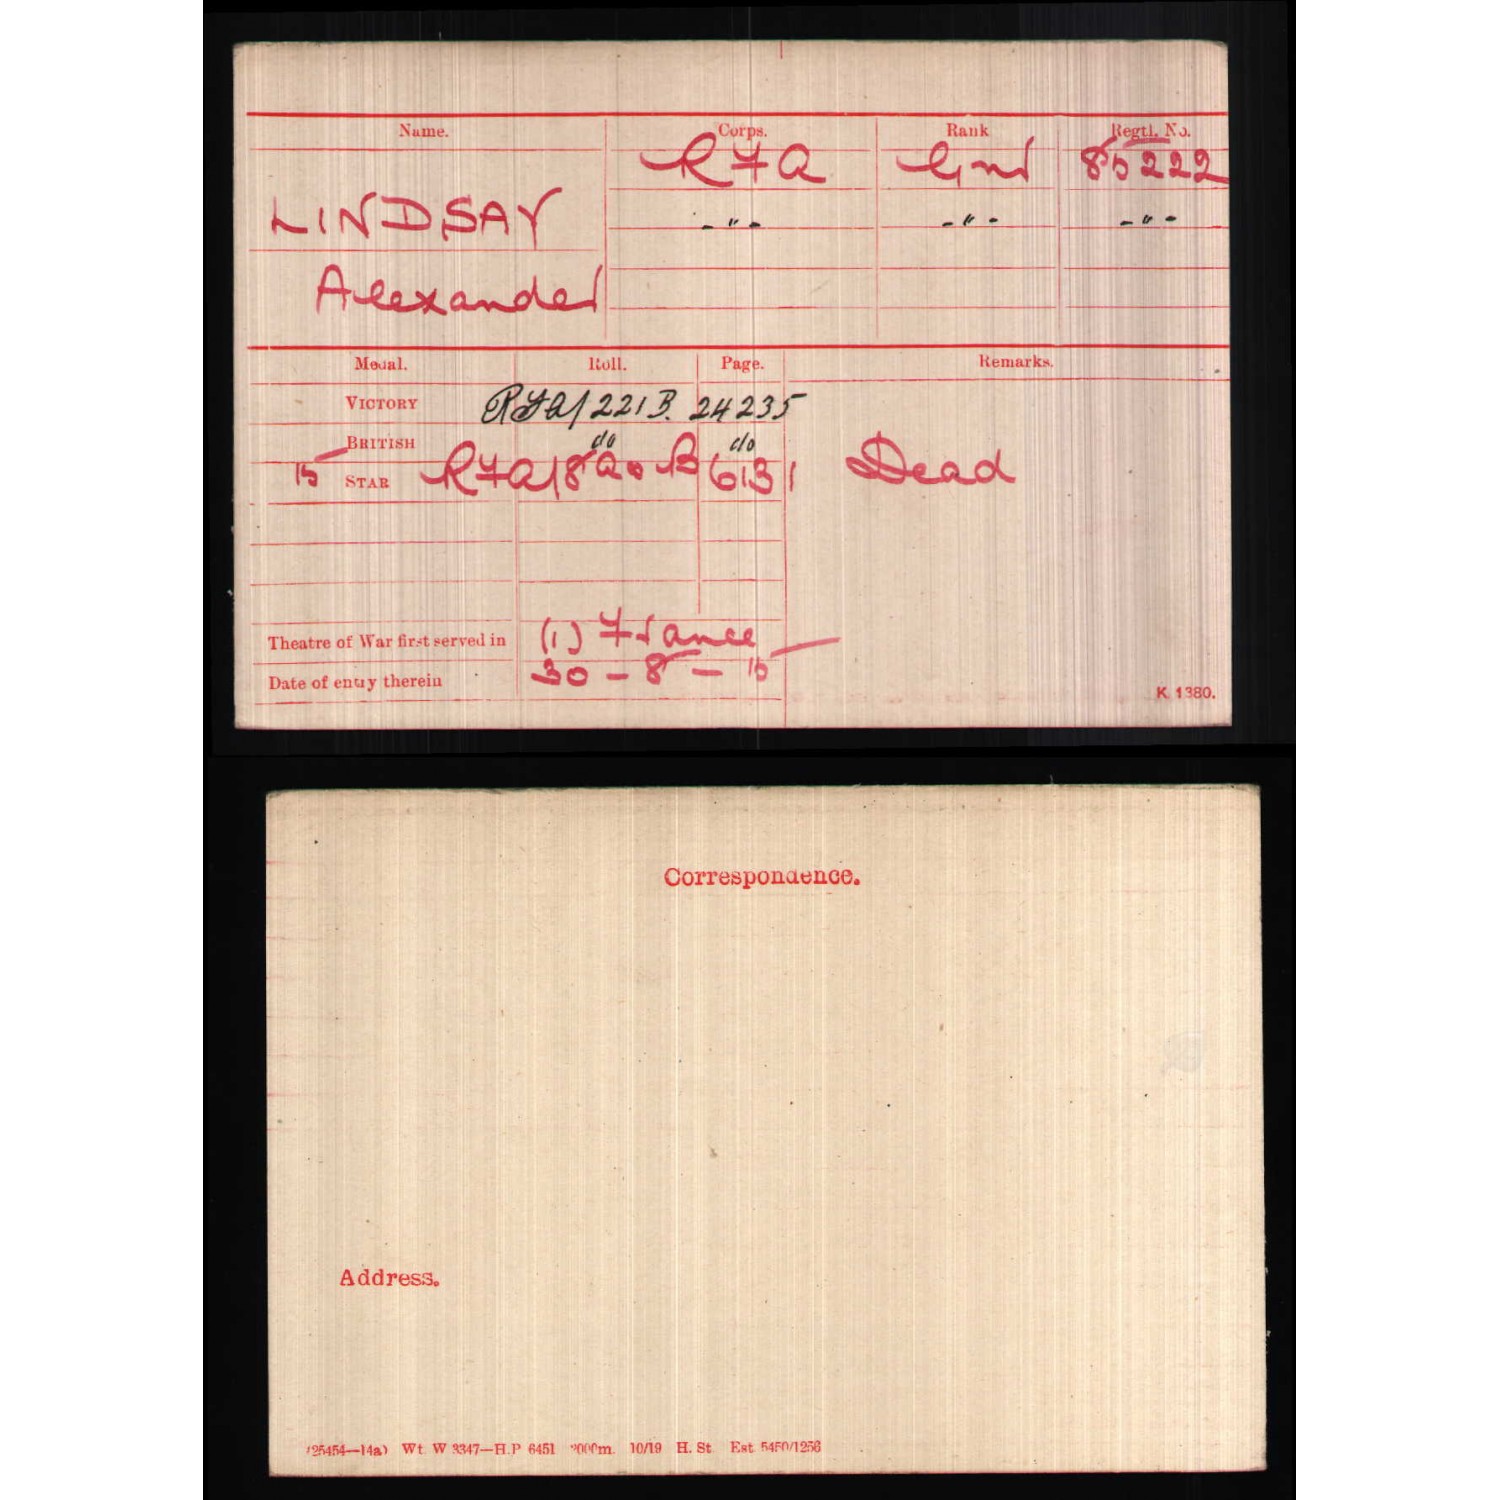 Name. Corps. Rank Regtl. No.
R F A Gnr 85222
LINDSAY -"- -"- -"-
Alexander
Medal. Roll. Page. Remarks.
VICTORY RFA/221B. 24235
BRITISH do do
15 STAR RFA/8 B 6131 Dead
Theatre of War first served in (1) France
Date of entry therein 30 - 8 - 15
K. 1380.
Correspondence.
Address.
(25454—14a) Wt. W 3347—H.P 6451 2000m. 10/19 H. St. Est. 5450/1256